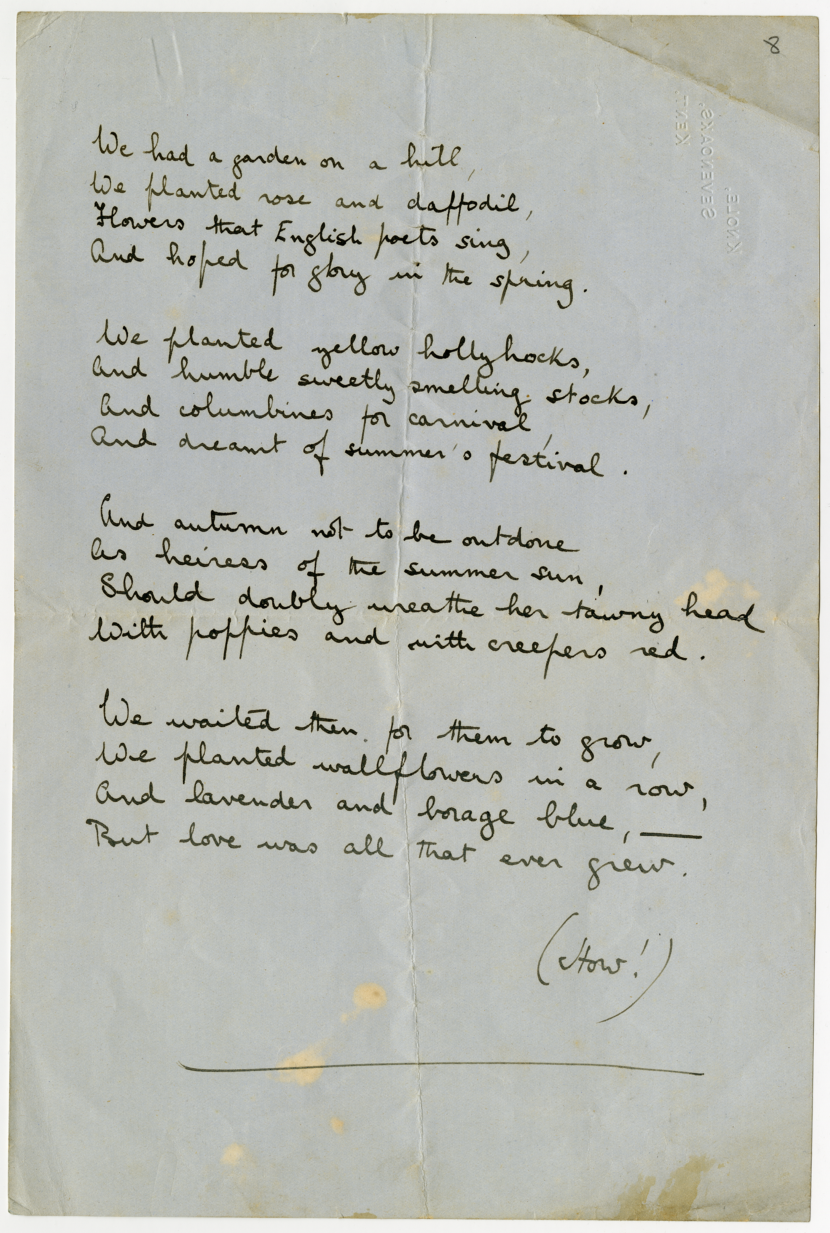 8
KNOLE,
SEVENOAKS,
KENT.
We had a garden on a hill,
We planted rose and daffodil,
Flowers that English poets sing,
And hoped for glory in the spring.
We planted yellow hollyhocks,
And humble sweetly smelling stocks,
And columbines for carnival,
And dreamt of summer's festival.
And autumn not to be outdone
As heiress of the summer sun,
Should doubly wreathe her tawny head
With poppies and with creepers red.
We waited then for them to grow,
We planted wallflowers in a row,
And lavender and borage blue, —
But love was all that ever grew.
(How!)